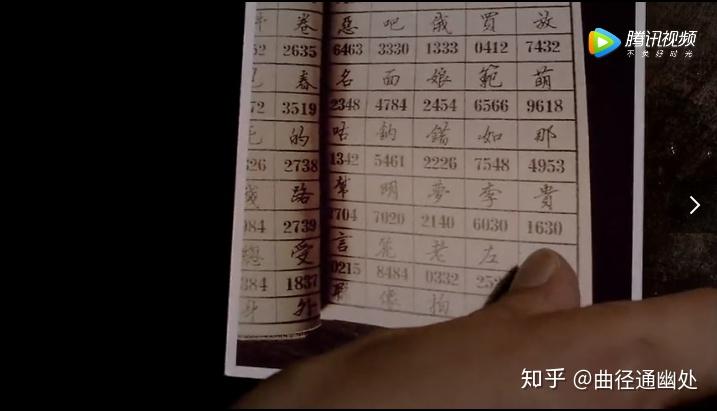 卷 惡 吧 俄 買 放
52 2635 6463 3330 1333 0412 7432
春 名 面 娘 範 萌
72 3519 2348 4784 2454 6566 9618
的 咭 鈎 錯 如 那
326 2738 1342 5461 2226 7548 4953
路 幫 明 夢 李 貴
984 2739 7704 7020 2140 6030 1630
總 受 言 笼 老 左
384 1837 0215 8484 0332 252
身 外 像 拍
腾讯视频
不负好时光
知乎 @曲径通幽处